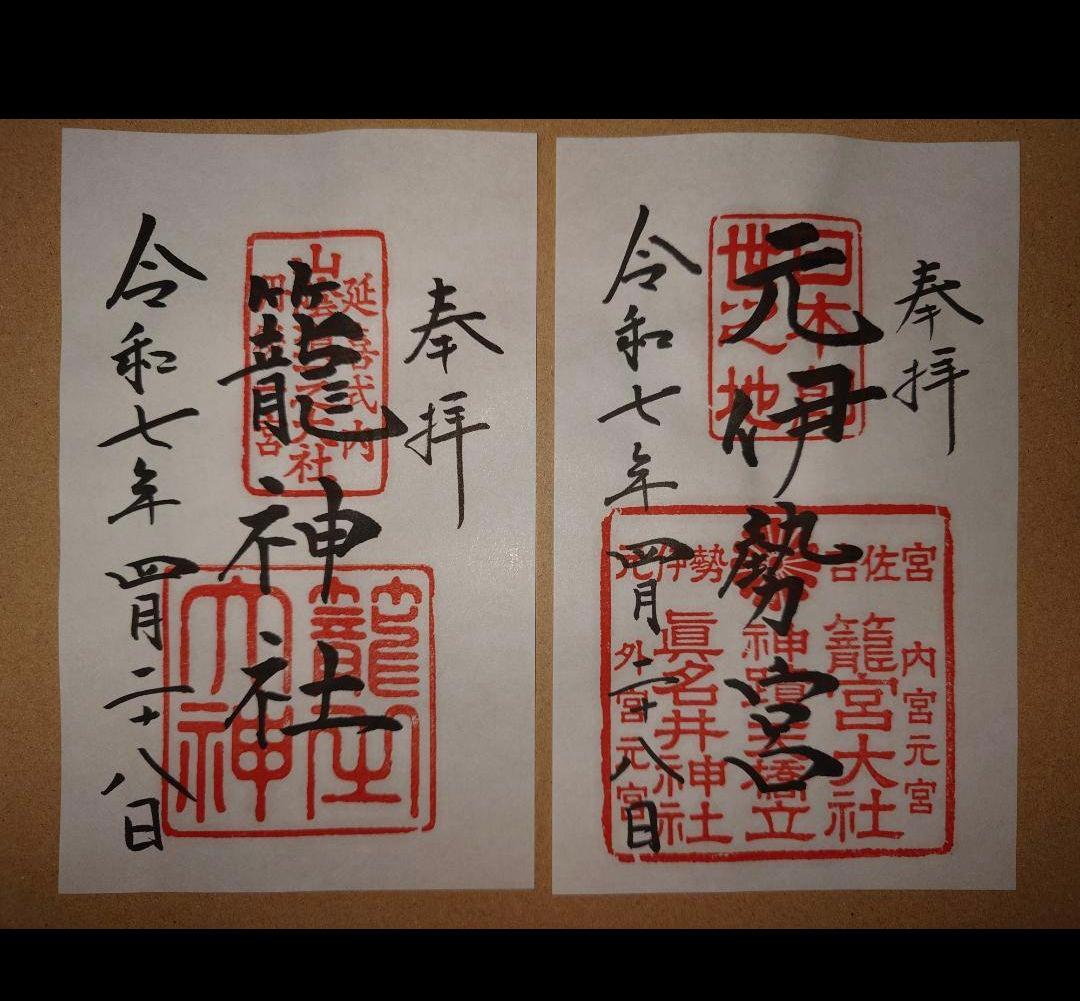 奉拝
延喜式内
山陰道一之大社
籠神社
籠之大神
令和七年四月二十八日
奉拝
日本最古
世之地
元伊勢宮
吉佐宮
元伊勢
内宮元宮
籠宮大社
神蹟天橋立
眞名井神社
外宮元宮
令和七年四月二十八日